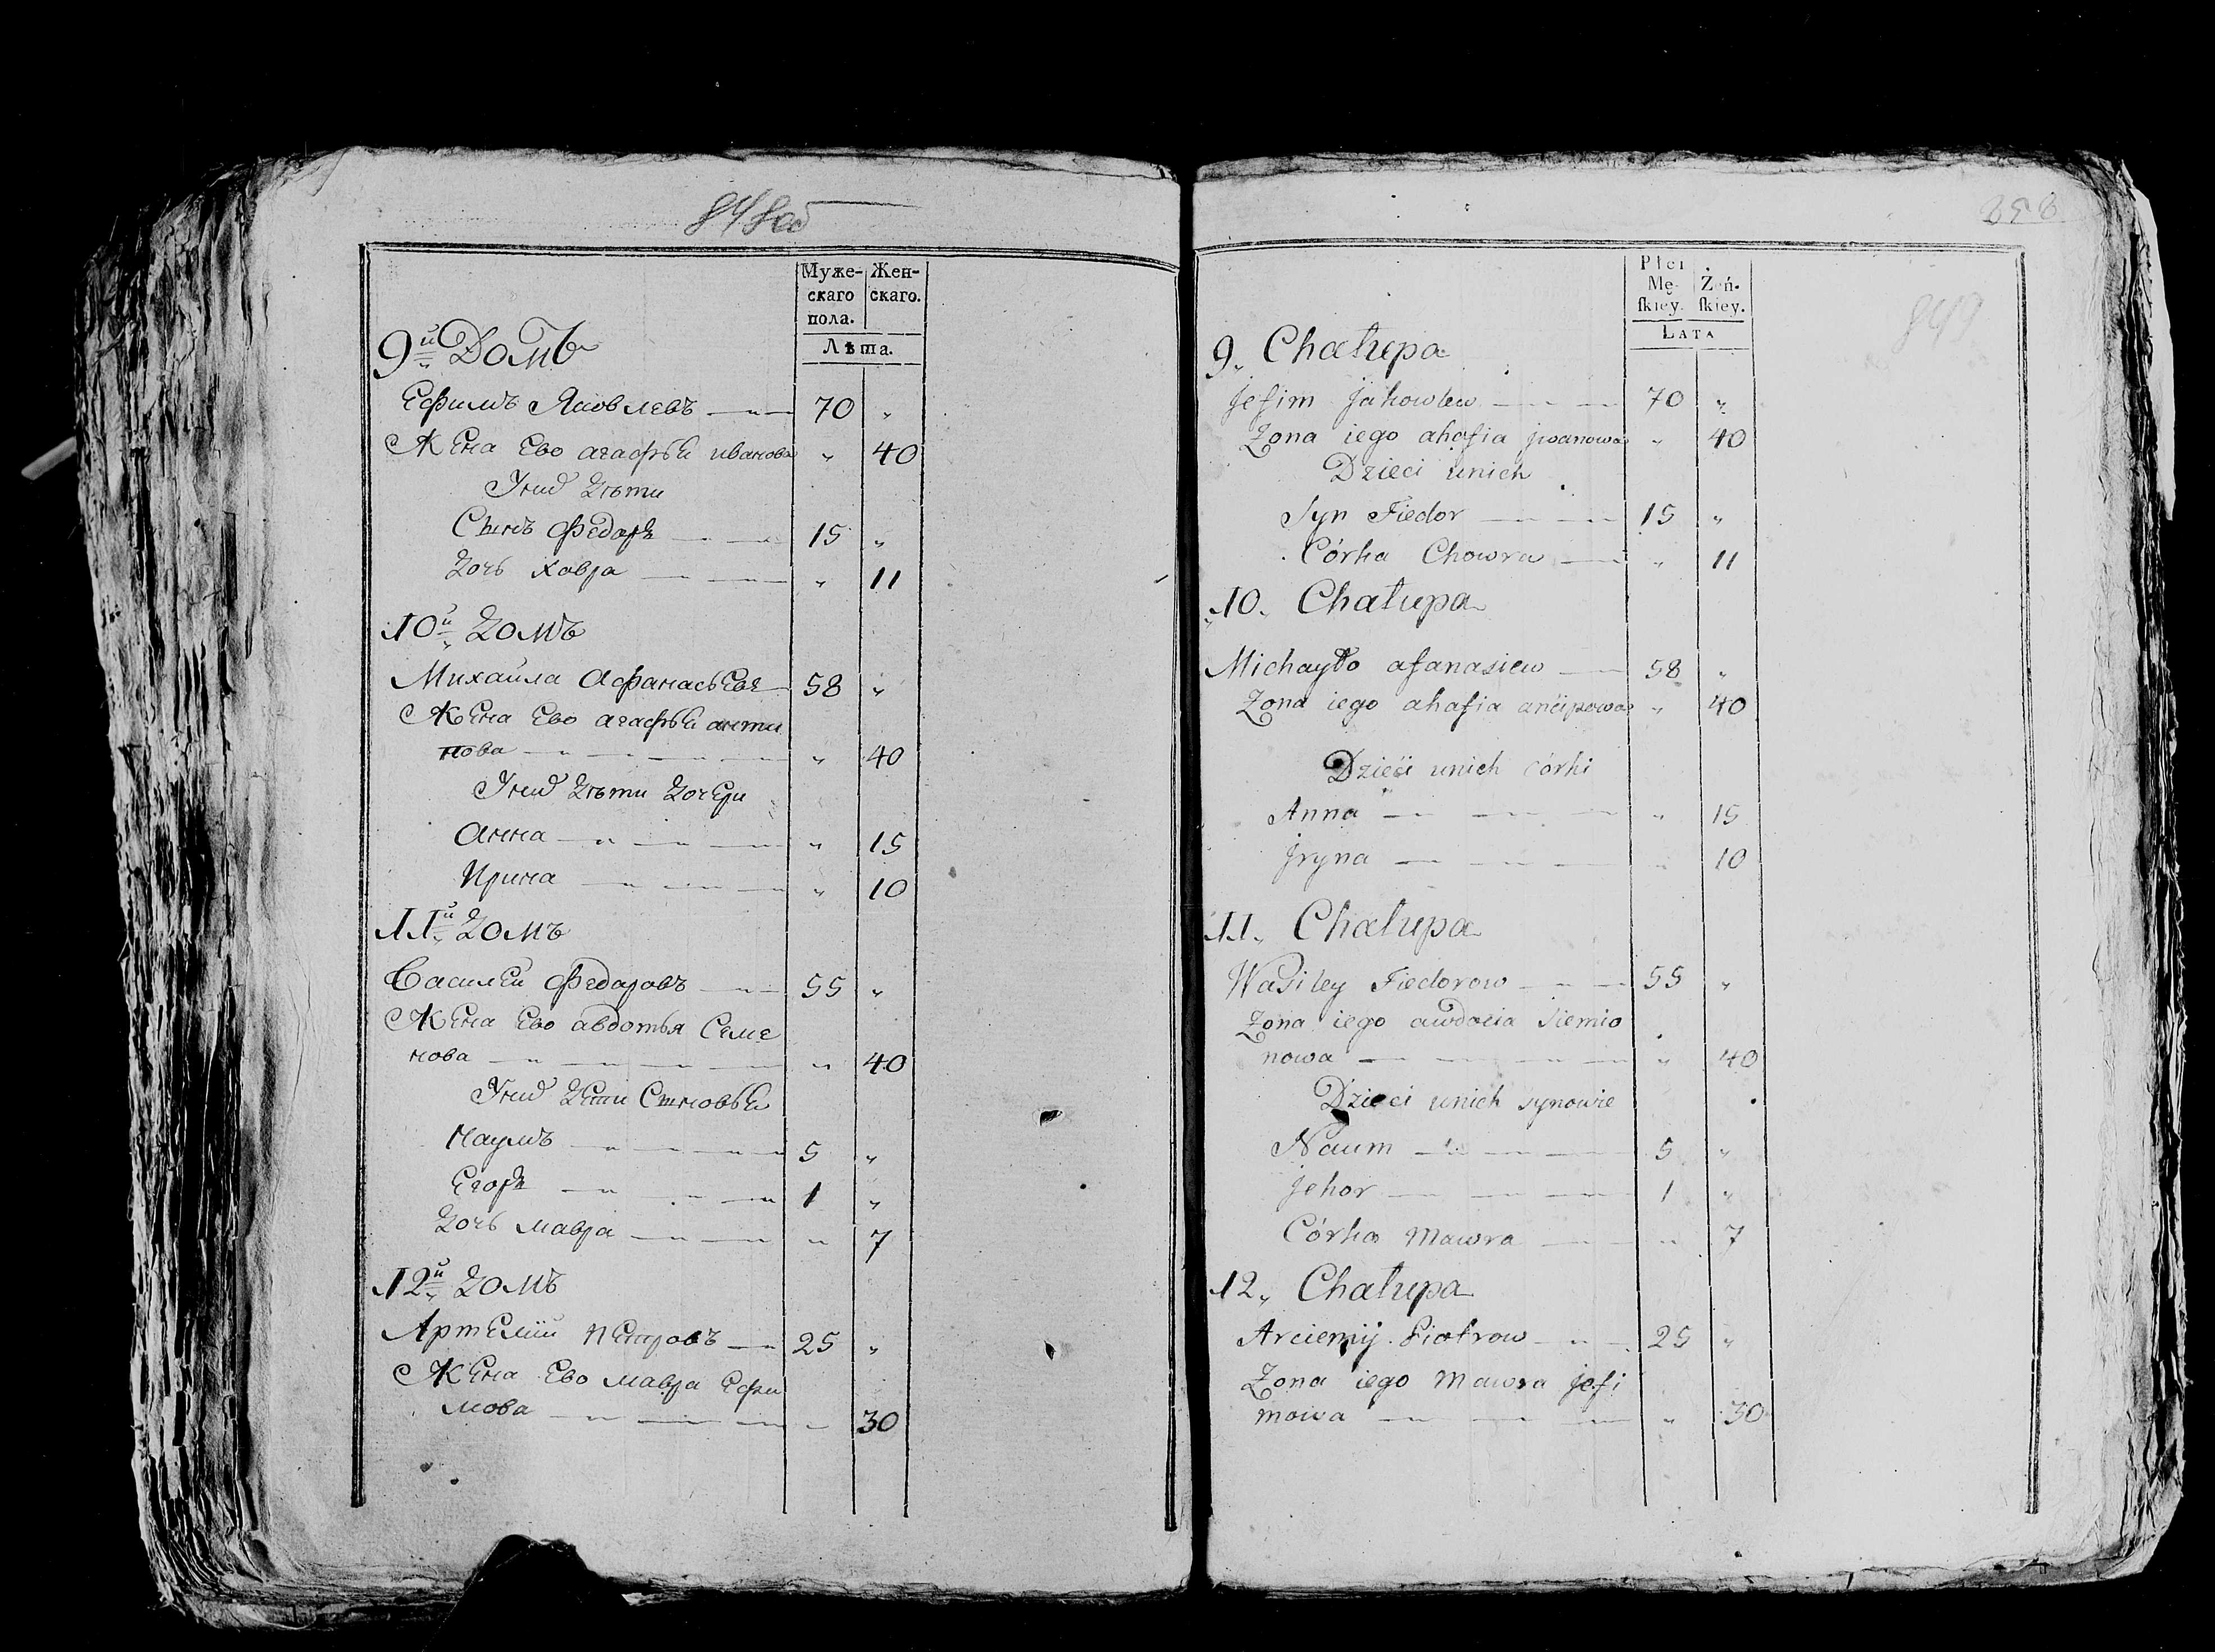 848об
Муже- Жен-
скаго скаго.
пола.
Лѣта.
9й Домъ
Ефимъ Яковлевъ 70 "
Жена Ево агафьи иванова " 40
Уних дѣти
Сынъ Федоръ 15 "
дочь Ховра " 11
10й домъ
Михаила Афанасьевъ 58 "
Жена Ево агафьи анти
пова " 40
Уних дѣти дочери
Анна " 15
Ирина " 10
11й домъ
Василеи Федоровъ 55 "
Жена Ево авдотья Семе
нова " 40
Уних дети Сыновьи
Наумъ 5 "
Егоръ 1 "
дочь мавра " 7
12й домъ
Артемiи петровъ 25 "
Жена Ево мавра Ефи
мова " 30
258
849
Płci
Mę- Żeń-
ſkiey. ſkiey.
LATA
9. Chałupa
Jefim Jakowlew 70 "
Zona iego ahafia jwanowa " 40
Dzieci unich
Syn Fiedor 15 "
Córka Chowra " 11
10. Chałupa
Michayło afanasiew 58 "
Zona iego ahafia ancipowa " 40
Dzieci unich córki
Anna " 15
Jryna " 10
11. Chałupa
Wasiley Fiedorow 55 "
Zona iego awdocia Siemio
nowa " 40
Dzieci unich synowie
Naum 5 "
Jehor 1 "
Córka Mawra " 7
12. Chałupa
Arciemij Piotrow 25 "
Zona iego Mawra Jefi
mowa " 30